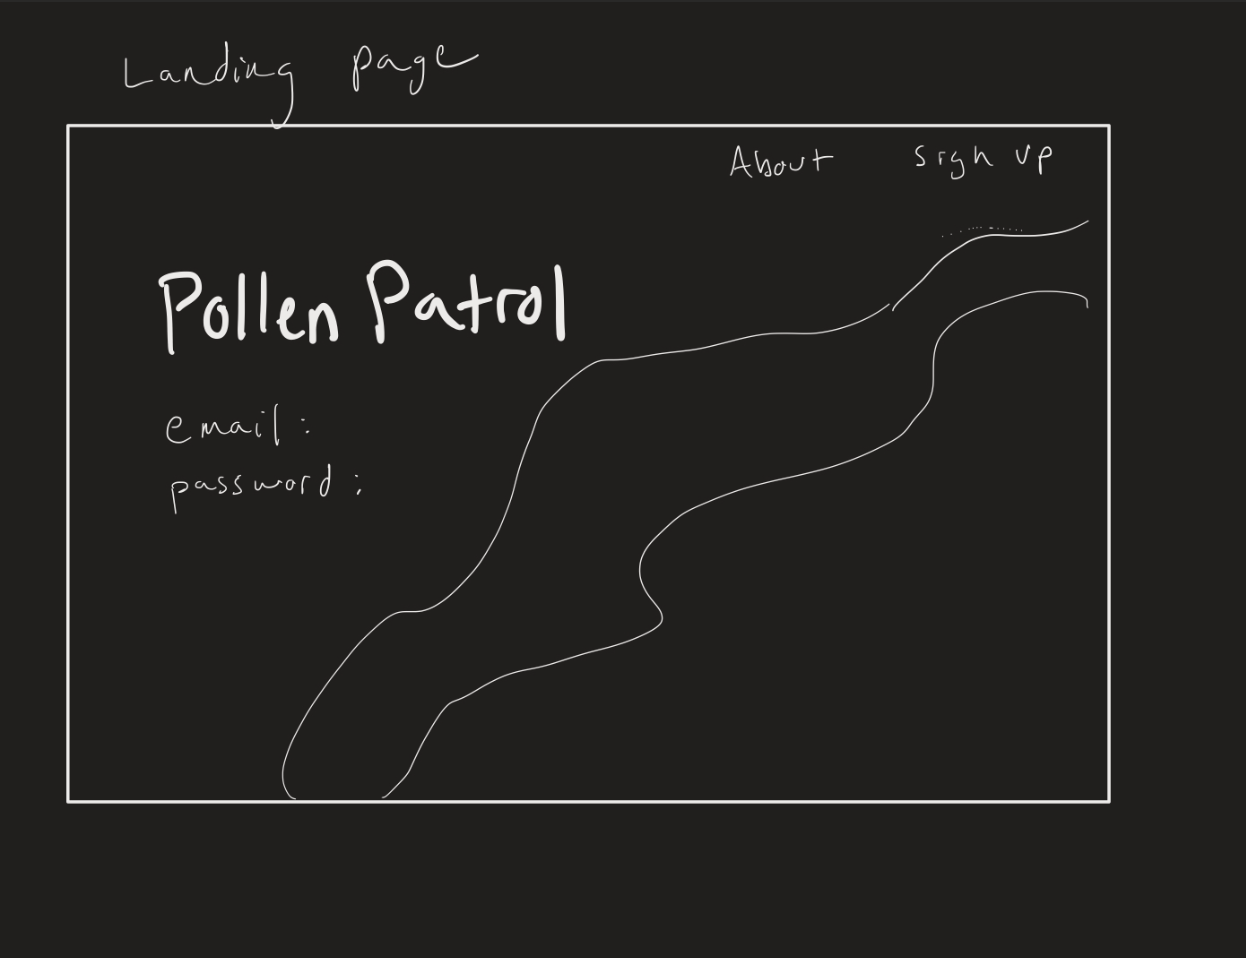 Landing page
About Sign up
Pollen Patrol
email:
password: